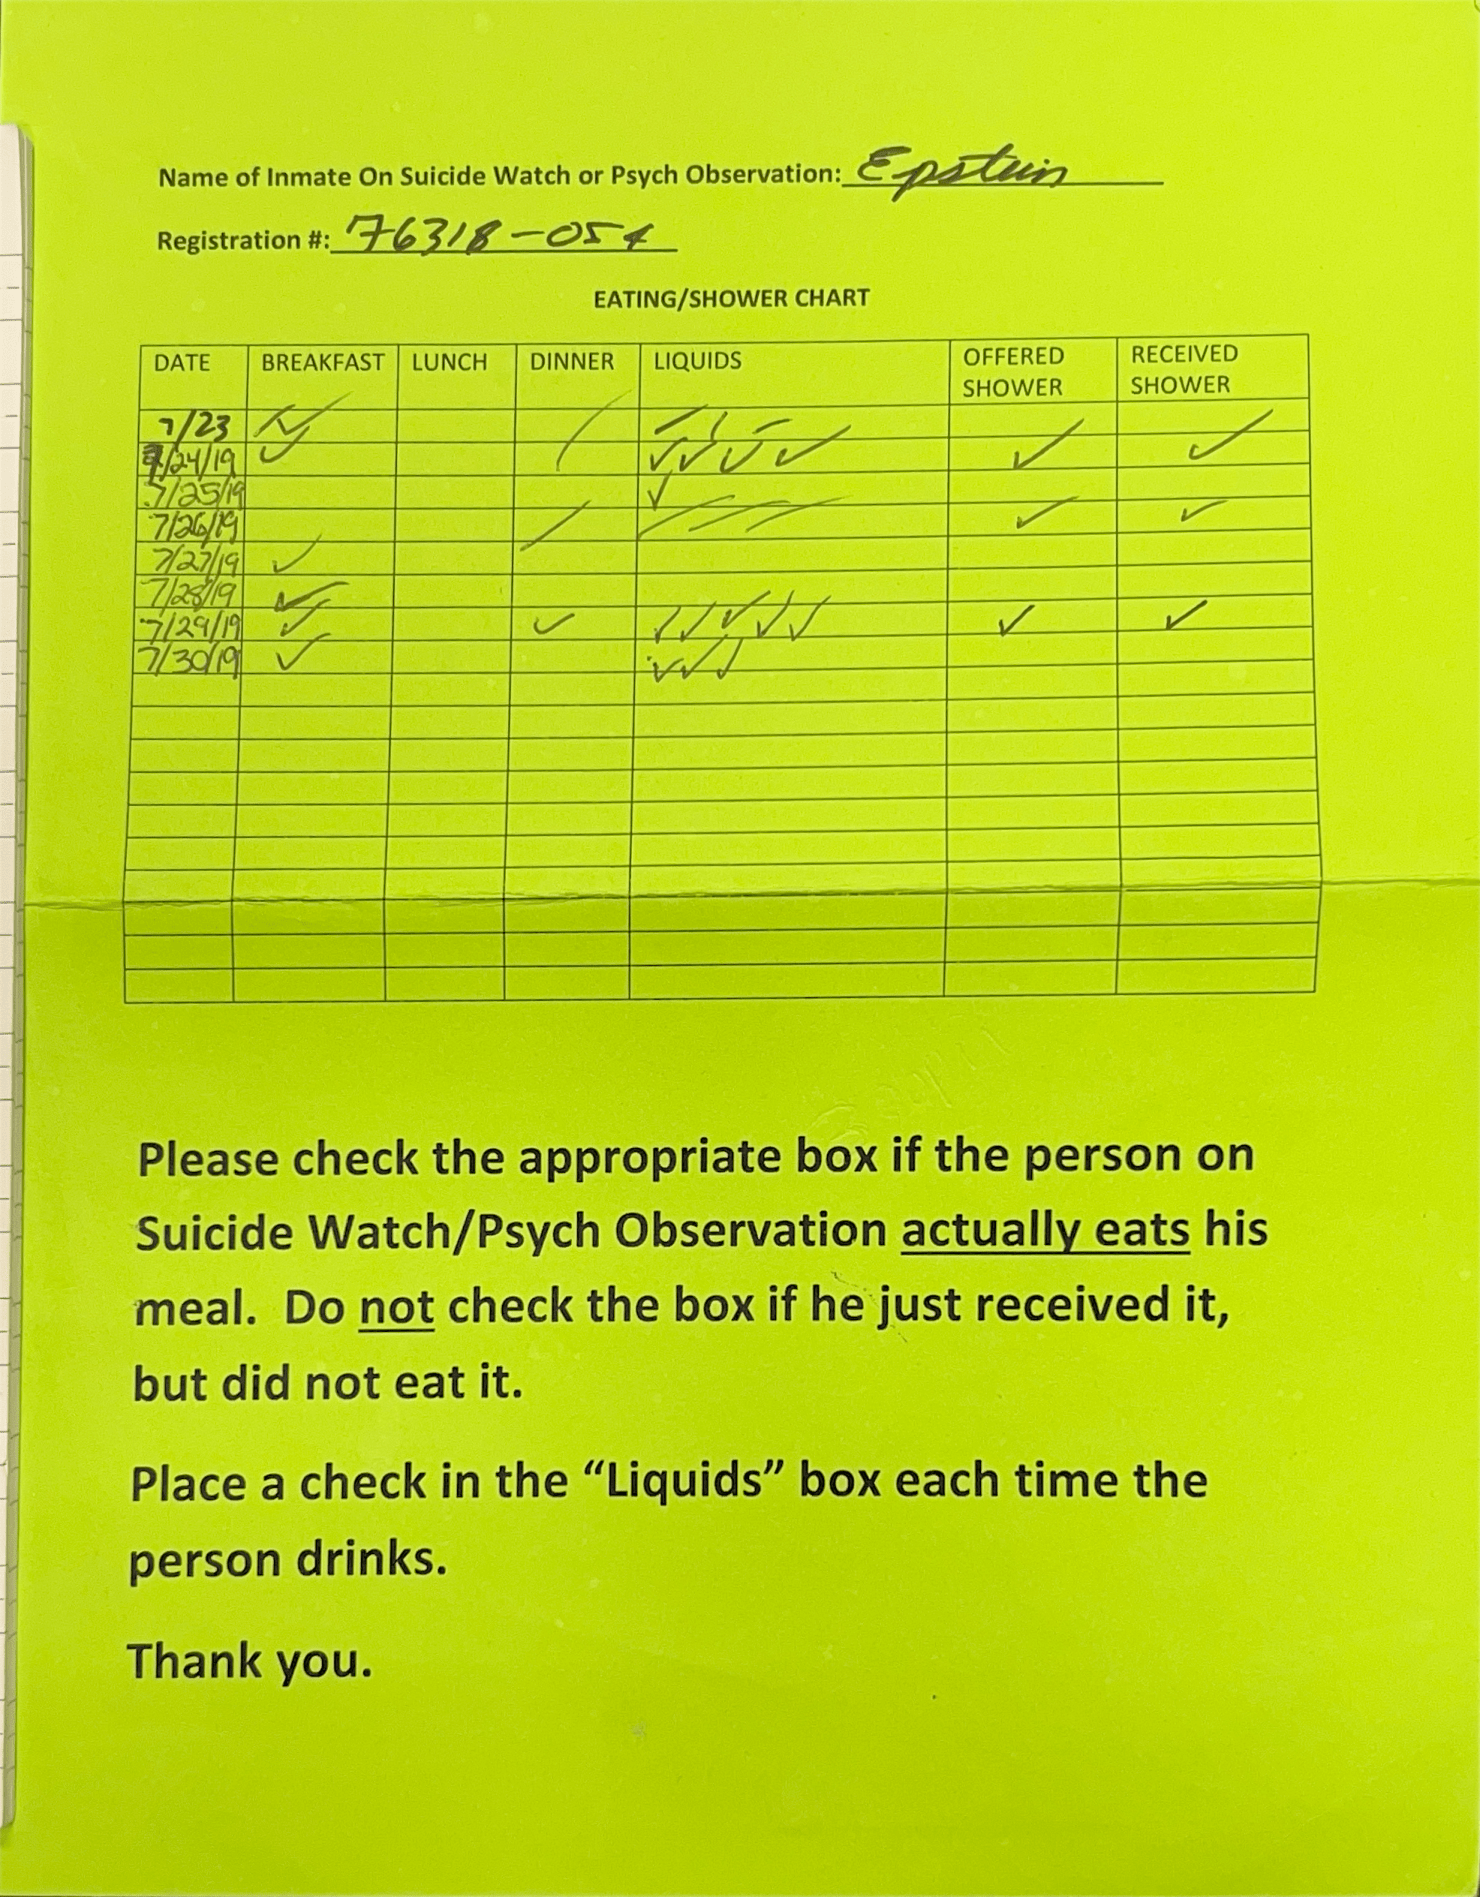 Name of Inmate On Suicide Watch or Psych Observation: Epstein
Registration #: 76318-054
EATING/SHOWER CHART
DATE BREAKFAST LUNCH DINNER LIQUIDS OFFERED SHOWER RECEIVED SHOWER
7/23 ✓ / – / –
7/24/19 ✓ ✓ ✓ ✓ ✓ ✓ ✓
7/25/19 ✓
7/26/19 / / / / ✓ ✓
7/27/19 ✓
7/28/19 ✓
7/29/19 ✓ ✓ ✓ ✓ ✓ ✓ ✓ ✓ ✓
7/30/19 ✓ ✓ ✓ ✓
Please check the appropriate box if the person on
Suicide Watch/Psych Observation actually eats his
meal. Do not check the box if he just received it,
but did not eat it.
Place a check in the “Liquids” box each time the
person drinks.
Thank you.